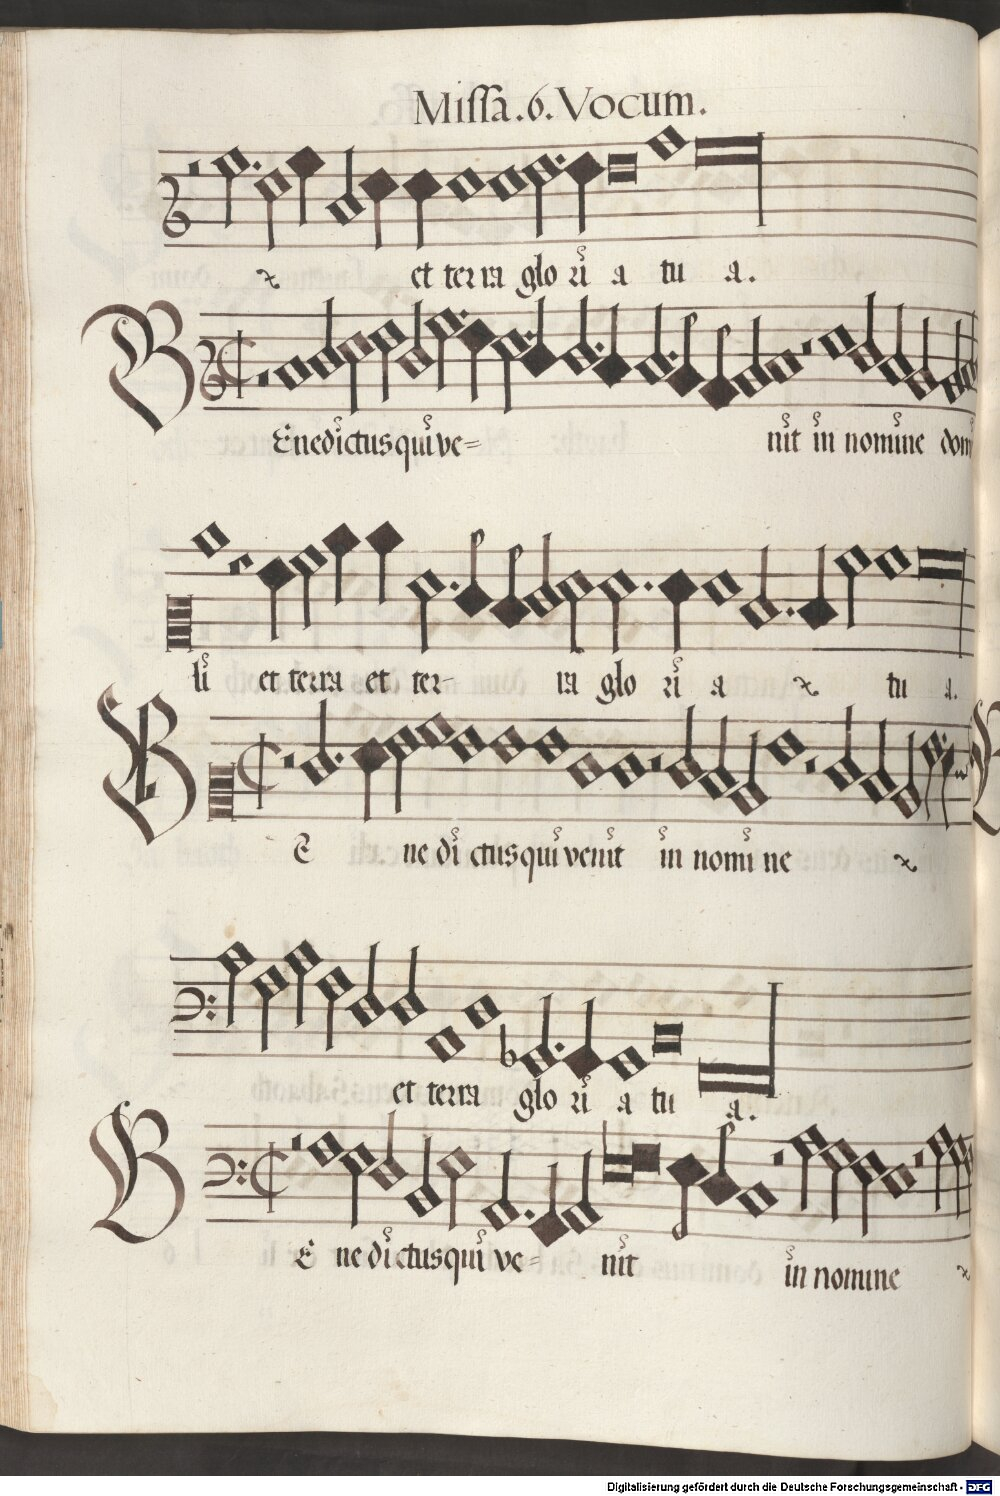 Missa.6.Vocum.
et terra glo ri a tu a.
Benedictus qui ve=nit in nomine dom
li et terra et ter-ra glo ri a tu a.
BE ne di ctus qui venit in nomi ne
et terra glo ri a tu a.
BE ne di ctus qui ve=nit in nomine
Digitalisierung gefördert durch die Deutsche Forschungsgemeinschaft - DFG